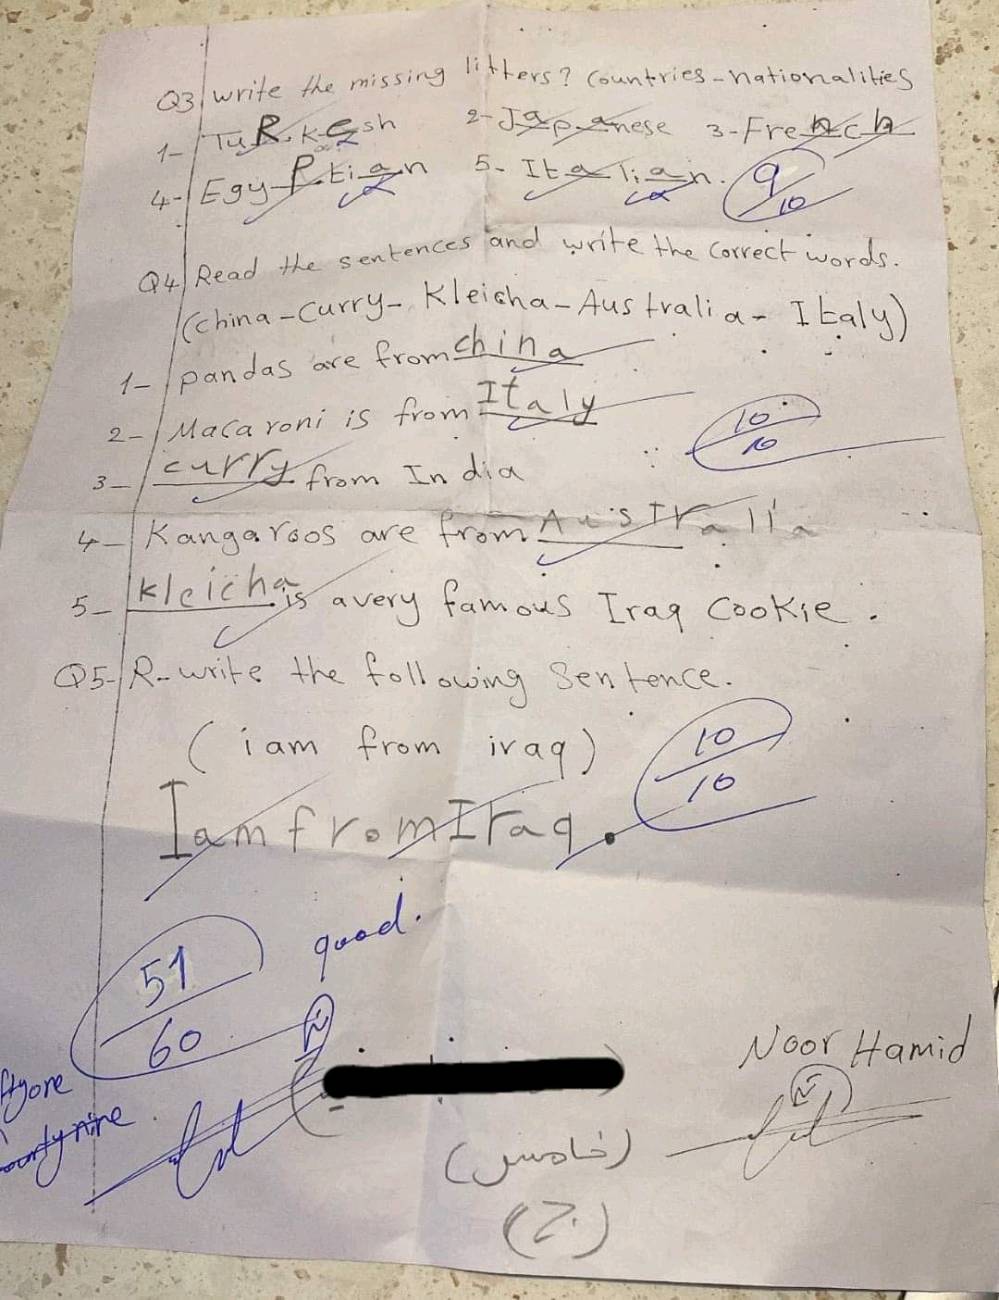 Q3/ write the missing litters? Countries-nationalities
1- TuRkesh 2- Japanese 3- French
4- EgyPtian 5- Italian. 9/10
Q4/ Read the sentences and write the correct words.
(China - Curry - Kleicha - Australia - Italy)
1- pandas are from china
2- Macaroni is from Italy
10/10
3- curry from India
4- Kangaroos are from Australia
5- kleicha is avery famous Iraq Cookie.
Q5- R-write the following Sentence.
(i am from iraq)
10/10
I am from Iraq.
51/60 good.
Noor Hamid
(خامس)
(ج)